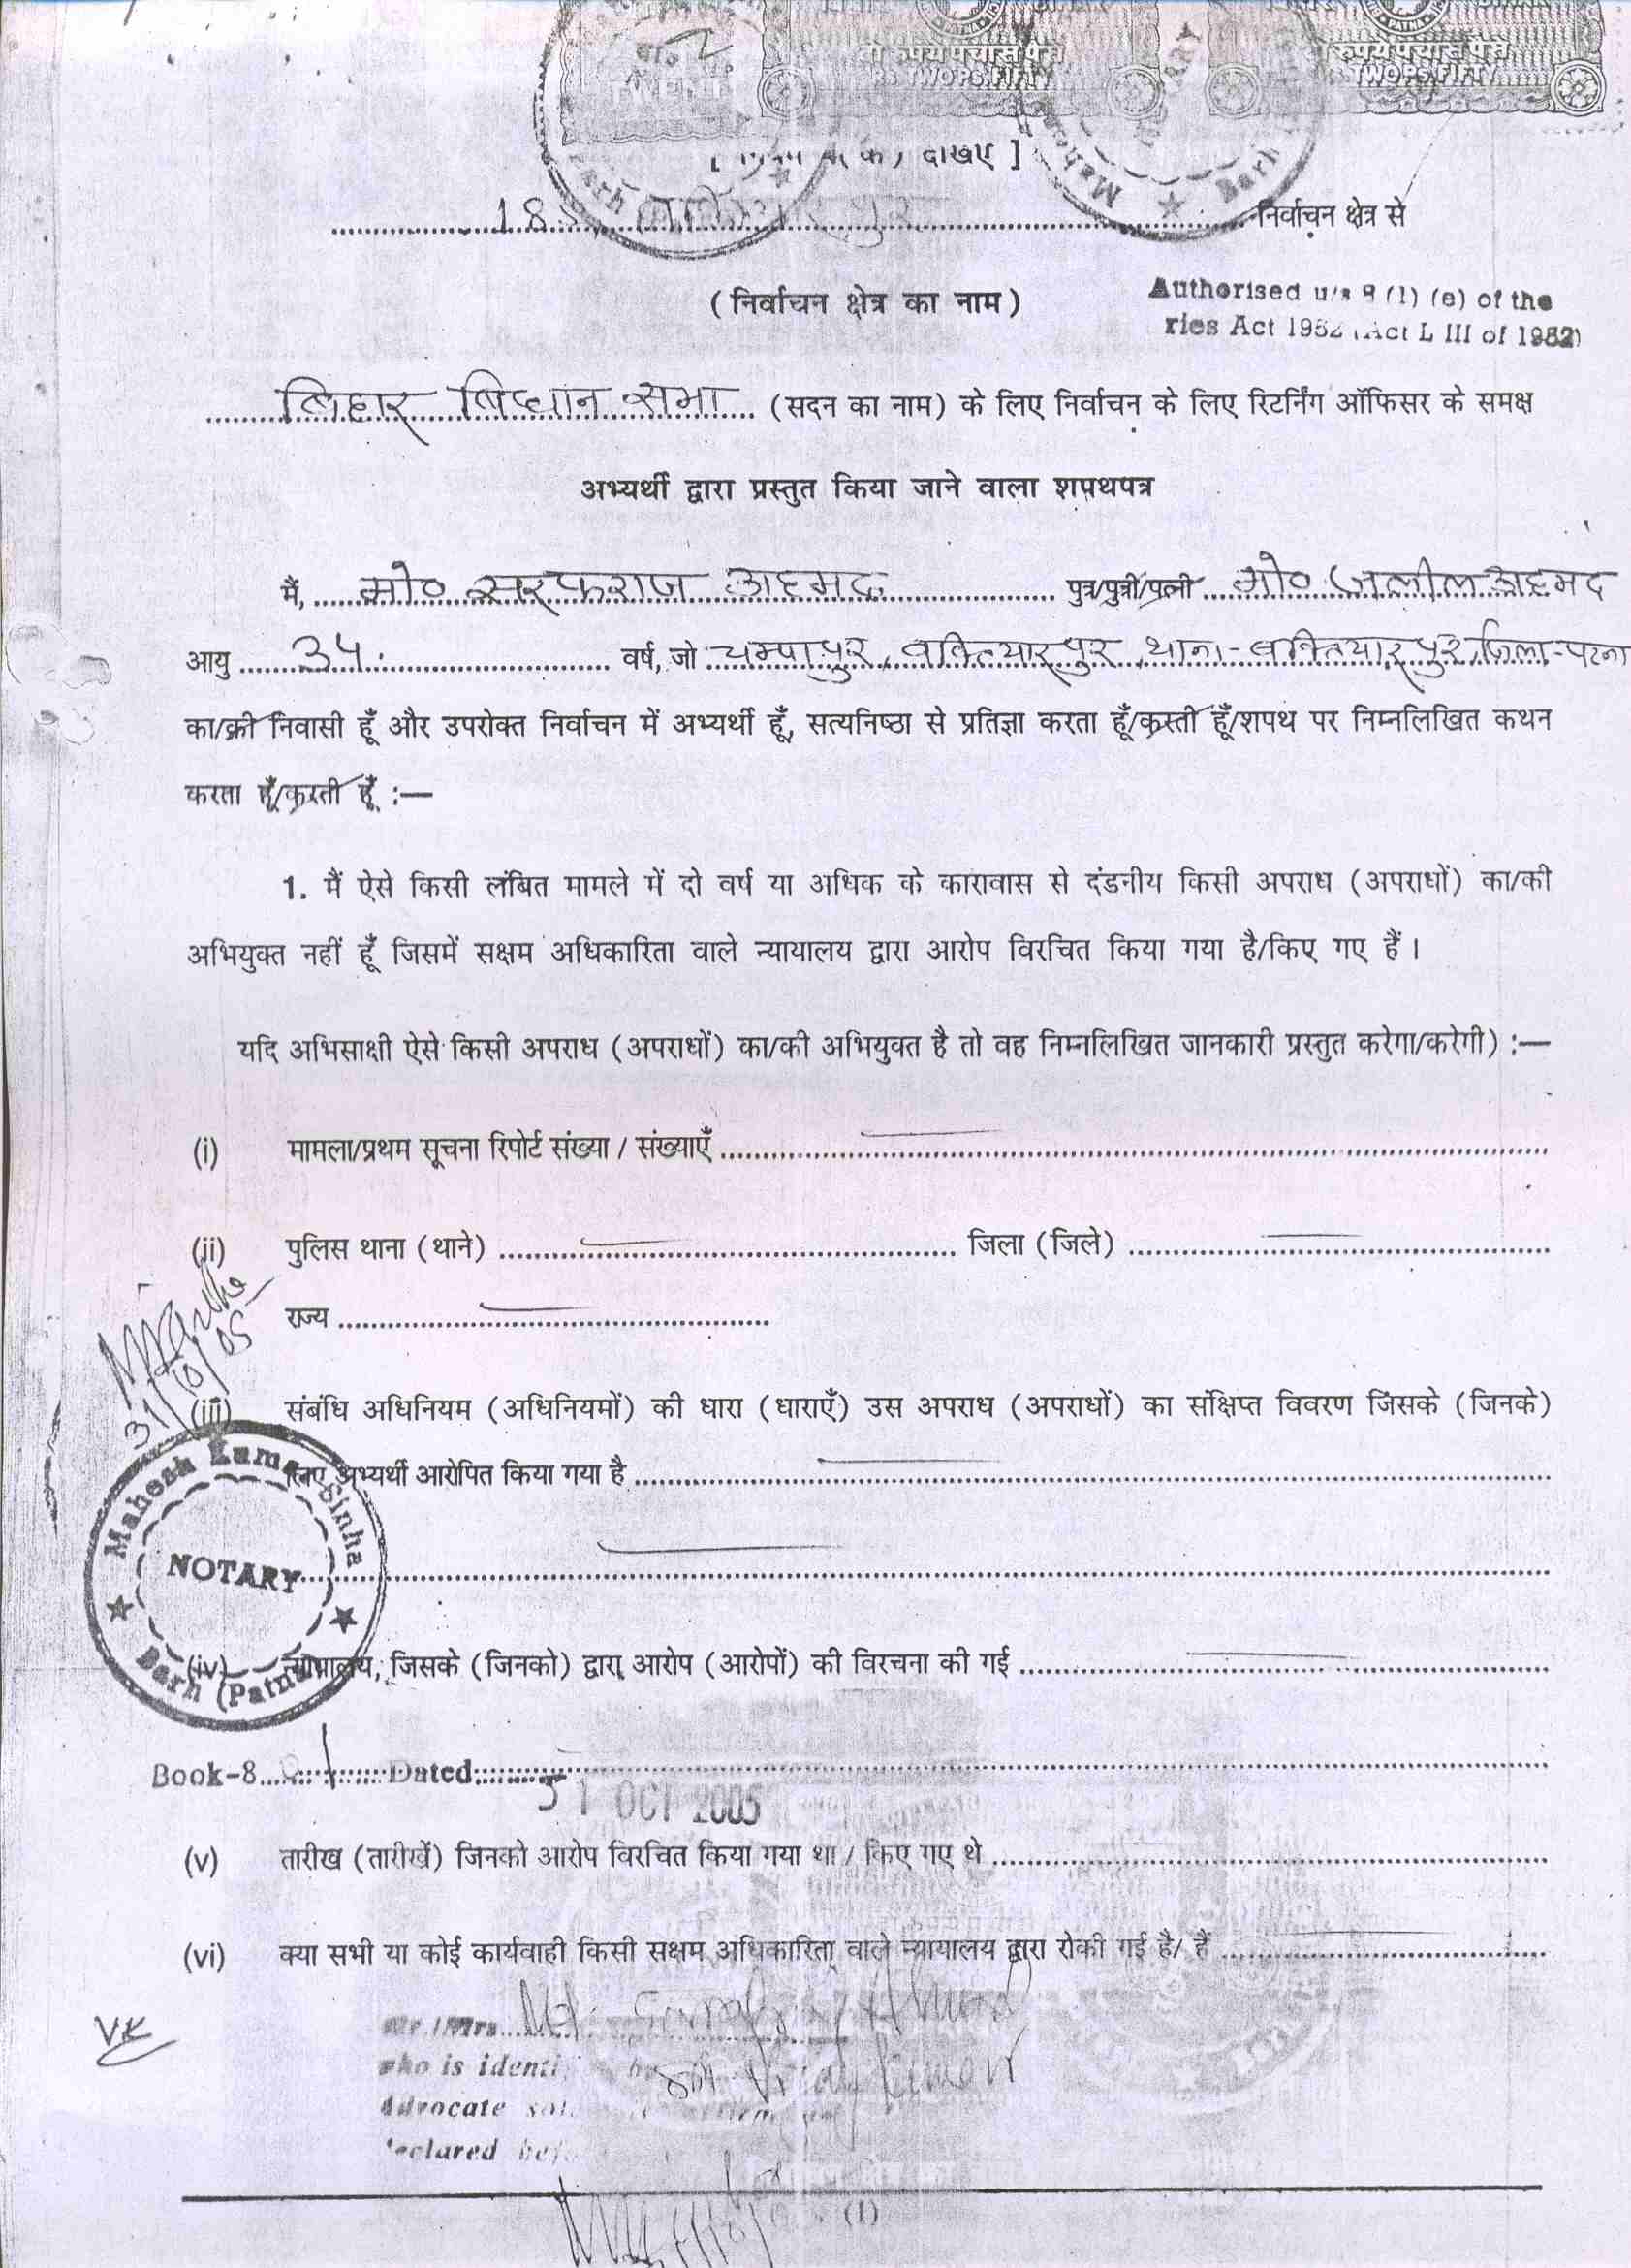 दो रुपये पचास पैसे रुपये पचास पैसे
TWENT RS. TWO PS. FIFTY TWO PS. FIFTY
दखिए ]
185 निर्वाचन क्षेत्र से
(निर्वाचन क्षेत्र का नाम)
Authorised u/s 8 (1) (e) of the
ries Act 1952 (Act L III of 1952)
बिहार विधान सभा (सदन का नाम) के लिए निर्वाचन के लिए रिटर्निंग ऑफिसर के समक्ष
अभ्यर्थी द्वारा प्रस्तुत किया जाने वाला शपथपत्र
मैं, मो० सरफराज अहमद पुत्र/पुत्री/पत्नी मो० जलील अहमद
आयु 34. वर्ष, जो चम्पापुर, वक्तियारपुर, थाना-वक्तियारपुर, जिला-पटना
का/की निवासी हूँ और उपरोक्त निर्वाचन में अभ्यर्थी हूँ, सत्यनिष्ठा से प्रतिज्ञा करता हूँ/करती हूँ/शपथ पर निम्नलिखित कथन
करता हूँ/करती हूँ :—
1. मैं ऐसे किसी लंबित मामले में दो वर्ष या अधिक के कारावास से दंडनीय किसी अपराध (अपराधों) का/की
अभियुक्त नहीं हूँ जिसमें सक्षम अधिकारिता वाले न्यायालय द्वारा आरोप विरचित किया गया है/किए गए हैं ।
यदि अभिसाक्षी ऐसे किसी अपराध (अपराधों) का/की अभियुक्त है तो वह निम्नलिखित जानकारी प्रस्तुत करेगा/करेगी) :—
(i) मामला/प्रथम सूचना रिपोर्ट संख्या / संख्याएँ
(ii) पुलिस थाना (थाने) जिला (जिले)
राज्य
31/10/05
(iii) संबंधि अधिनियम (अधिनियमों) की धारा (धाराएँ) उस अपराध (अपराधों) का संक्षिप्त विवरण जिसके (जिनके)
लिए अभ्यर्थी आरोपित किया गया है
Mahesh Kumar Sinha
NOTARY
Barh (Patna)
(iv) न्यायालय, जिसके (जिनको) द्वारा आरोप (आरोपों) की विरचना की गई
Book-8 Dated
31 OCT 2005
(v) तारीख (तारीखें) जिनको आरोप विरचित किया गया था / किए गए थे
(vi) क्या सभी या कोई कार्यवाही किसी सक्षम अधिकारिता वाले न्यायालय द्वारा रोकी गई है/ हैं
VK
Mr./Mrs Md.
who is identi
Advocate
declared
(1)